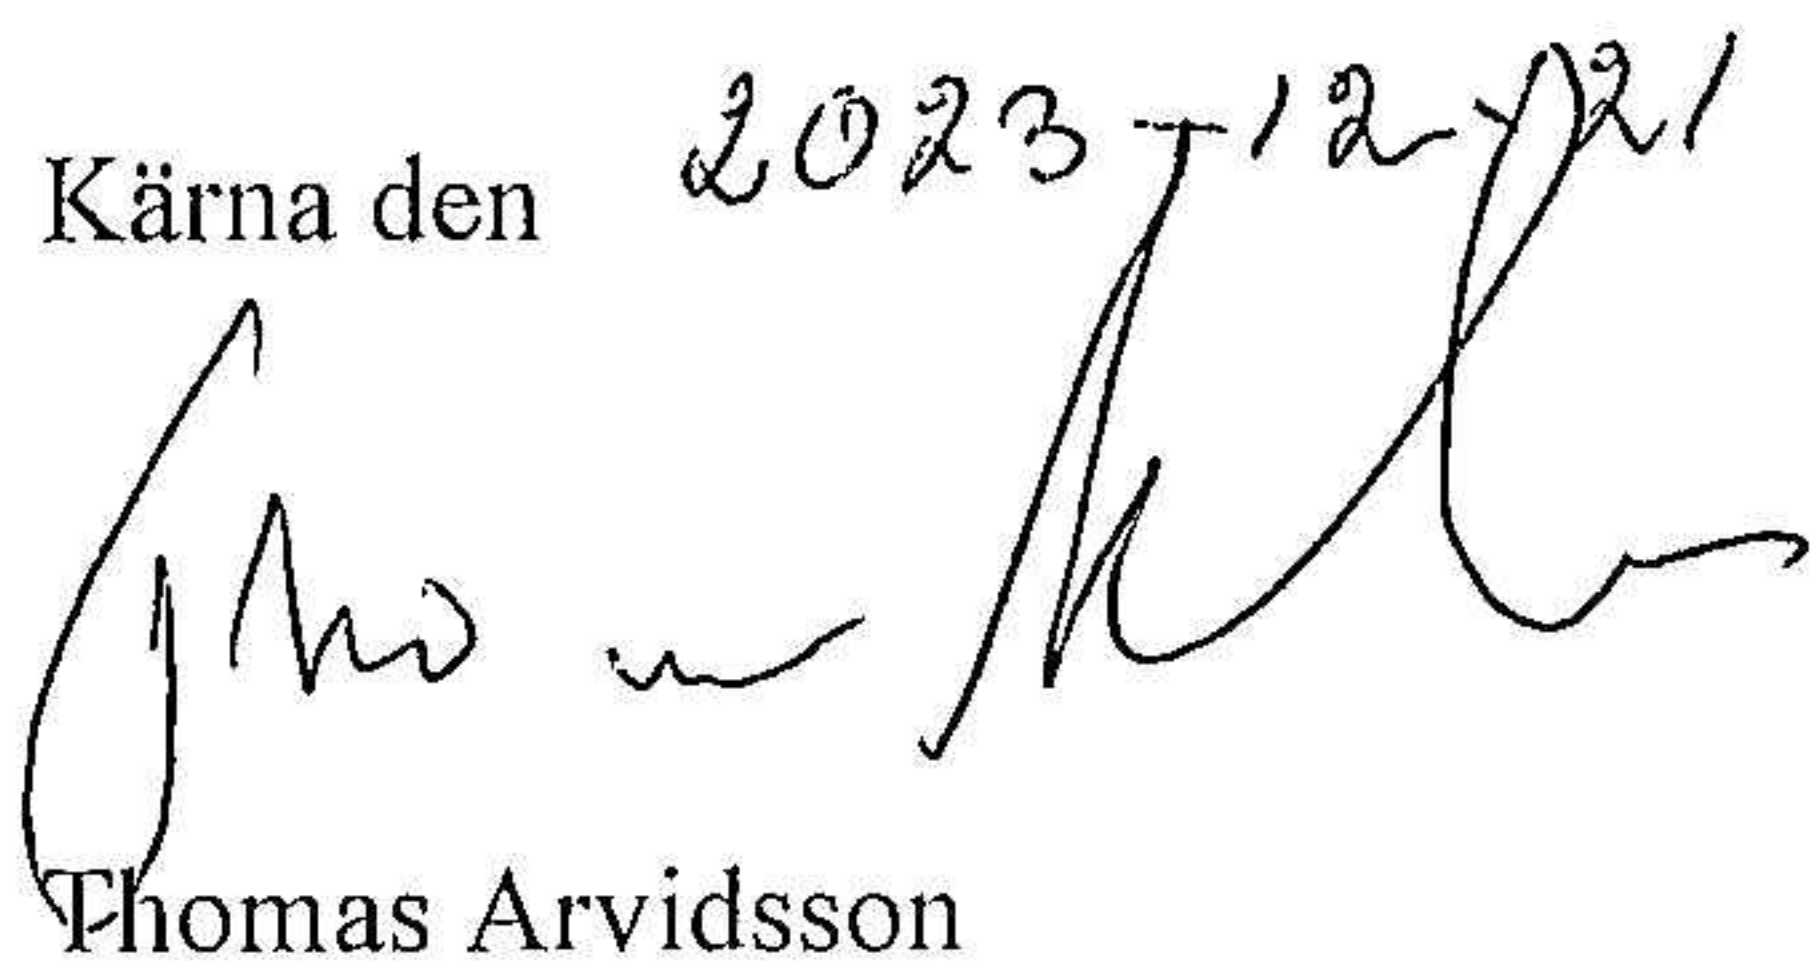 Kärna den 2023-12-21
Thomas Arvidsson